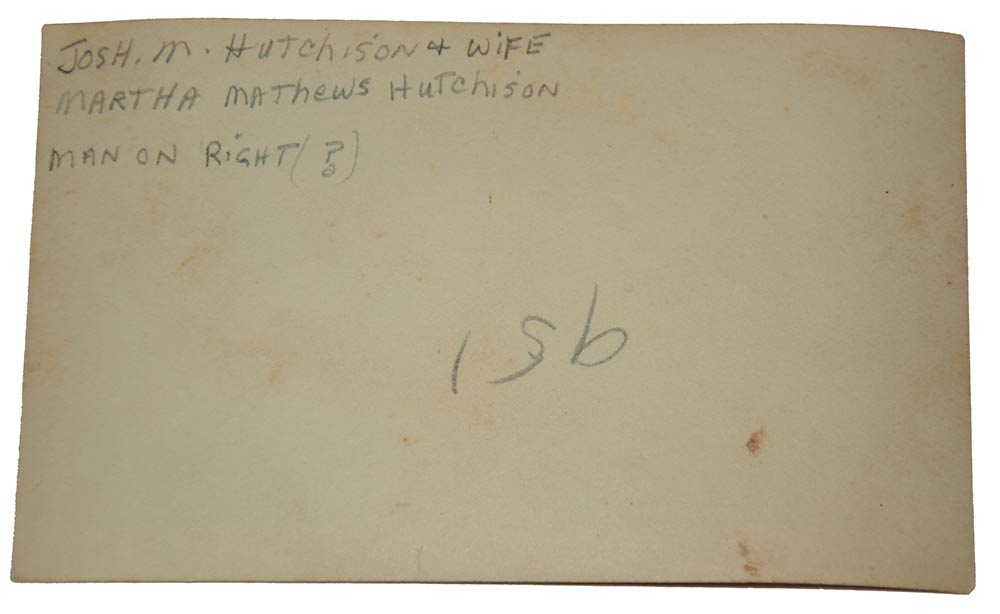 JOSH. M. HUTCHISON & WIFE
MARTHA MATHEWS HUTCHISON
MAN ON RIGHT (?)
156